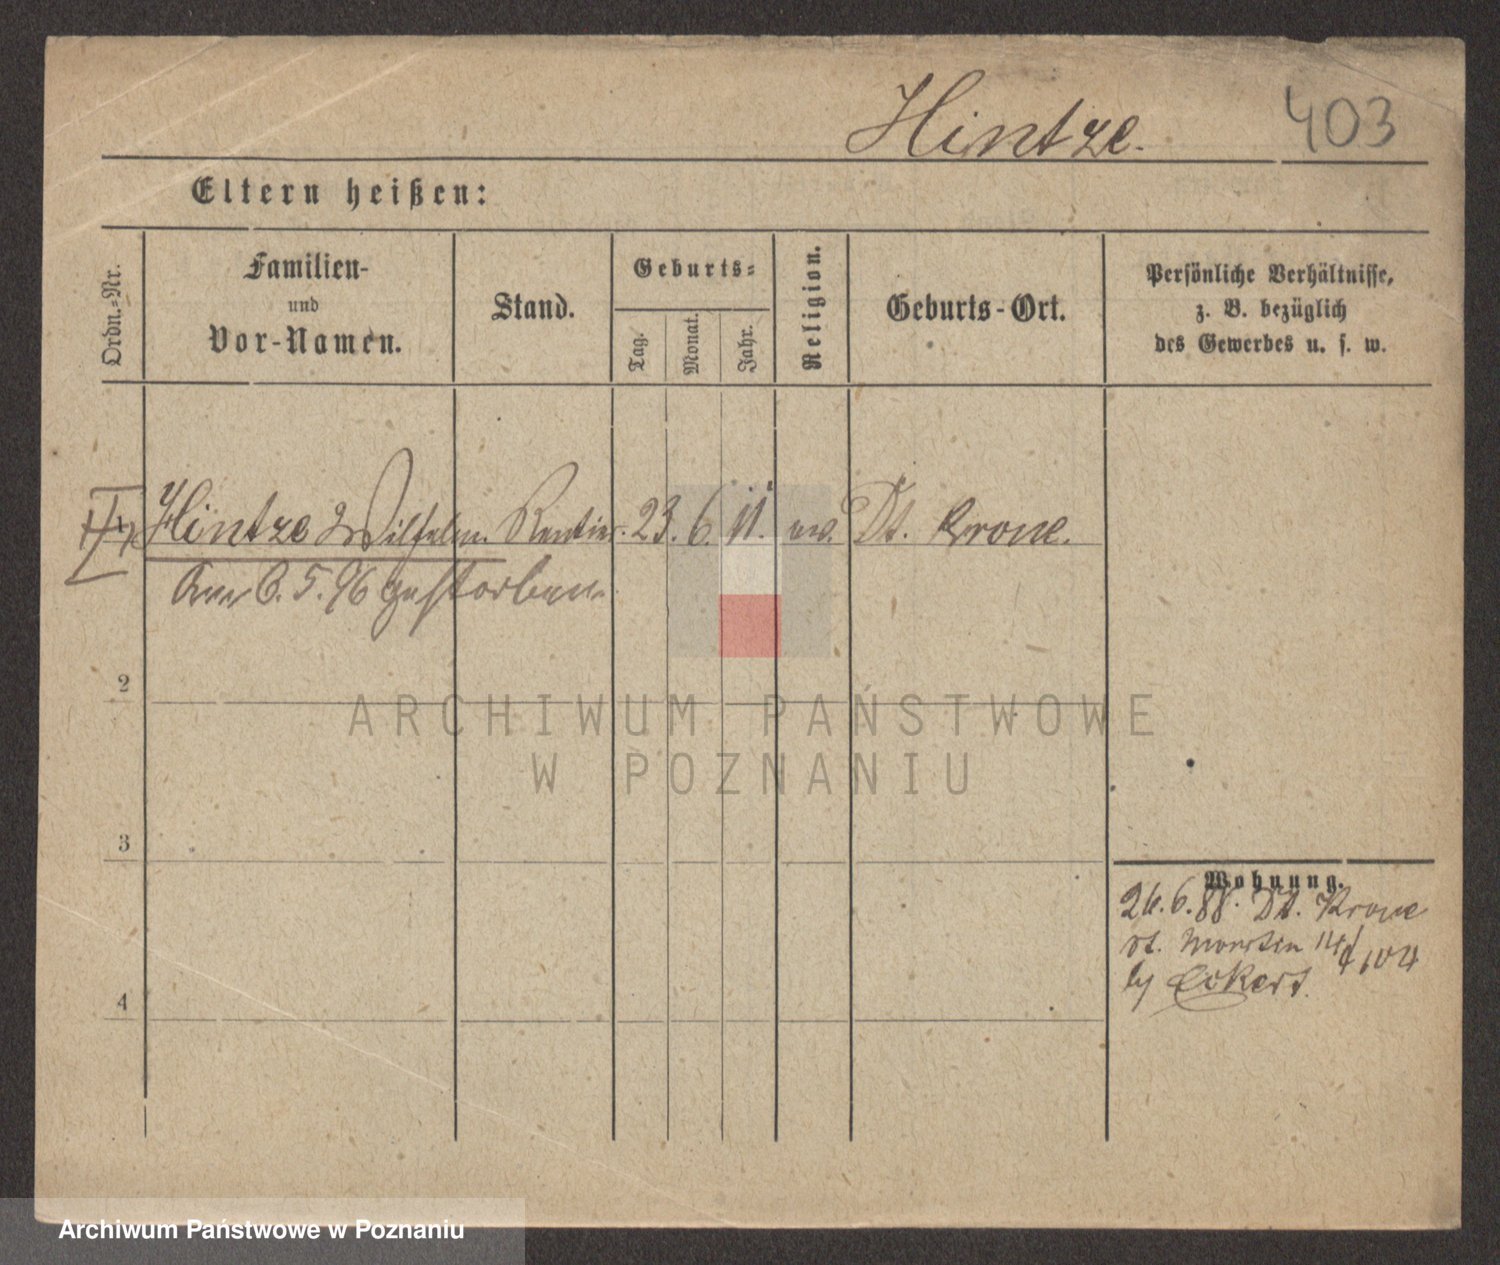 Hintze. 403
Eltern heißen:
Ordn.-Nr.
Familien-
und
Vor-Namen.
Stand.
Geburts-
Tag.
Monat.
Jahr.
Religion.
Geburts-Ort.
Persönliche Verhältnisse,
z. B. bezüglich
des Gewerbes u. s. w.
1 Hintze Wilhelm Rentier. 23. 6. 11. ev. Dt. Krone.
Am 6. 5. 96 gestorben
2
ARCHIWUM PAŃSTWOWE
W POZNANIU
3
Wohnung.
26. 6. 88. Dt. Krone
St. Martin
by Eckert.
4
Archiwum Państwowe w Poznaniu